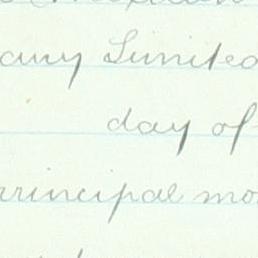 any Limited
day of
principal mo